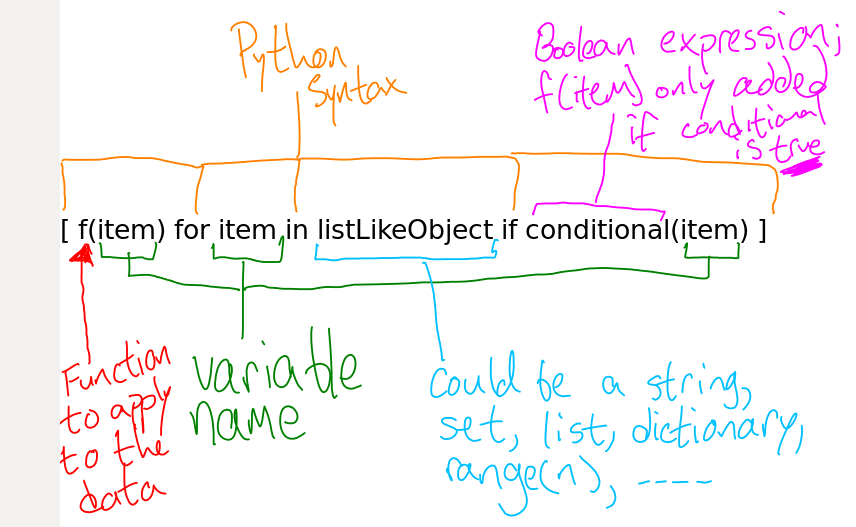 Python
Syntax
Boolean expression;
f(item) only added
if conditional
is true
[ f(item) for item in listLikeObject if conditional(item) ]
Function
to apply
to the
data
variable
name
Could be a string,
set, list, dictionary,
range(n), ----